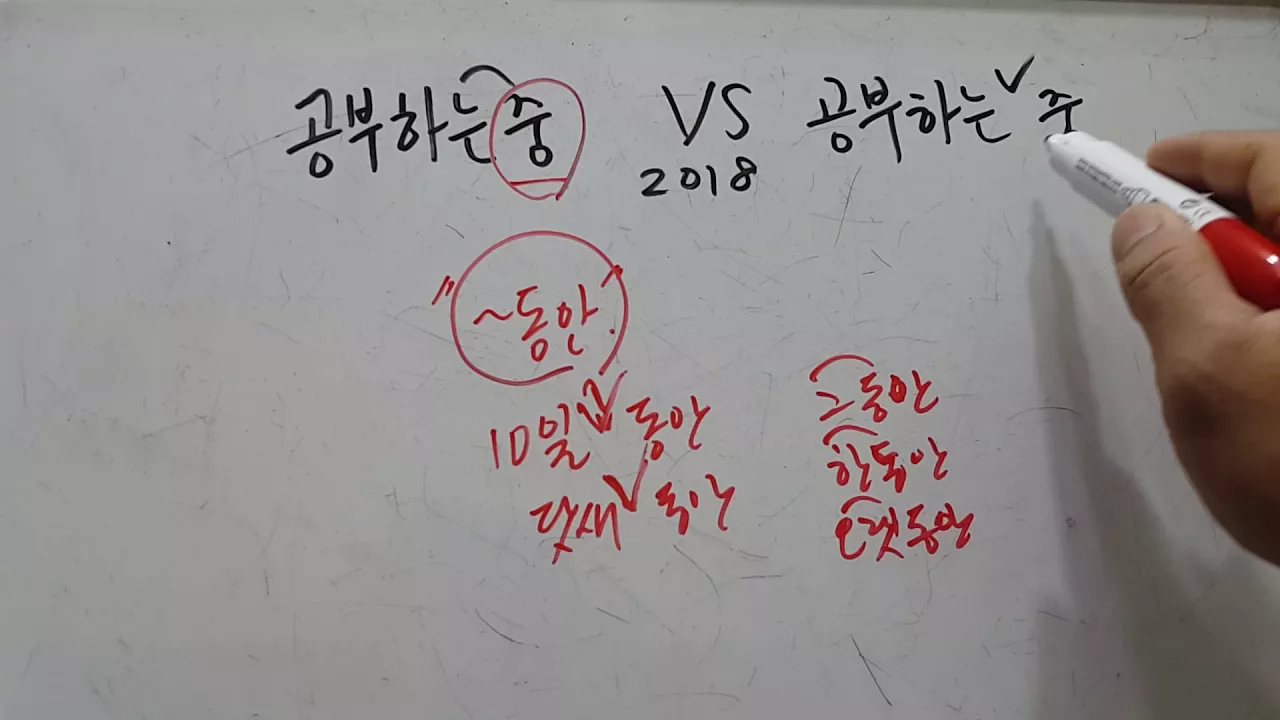 공부하는중 VS 공부하는 중
2018
~동안
10일 동안
닷새 동안
그동안
한동안
오랫동안